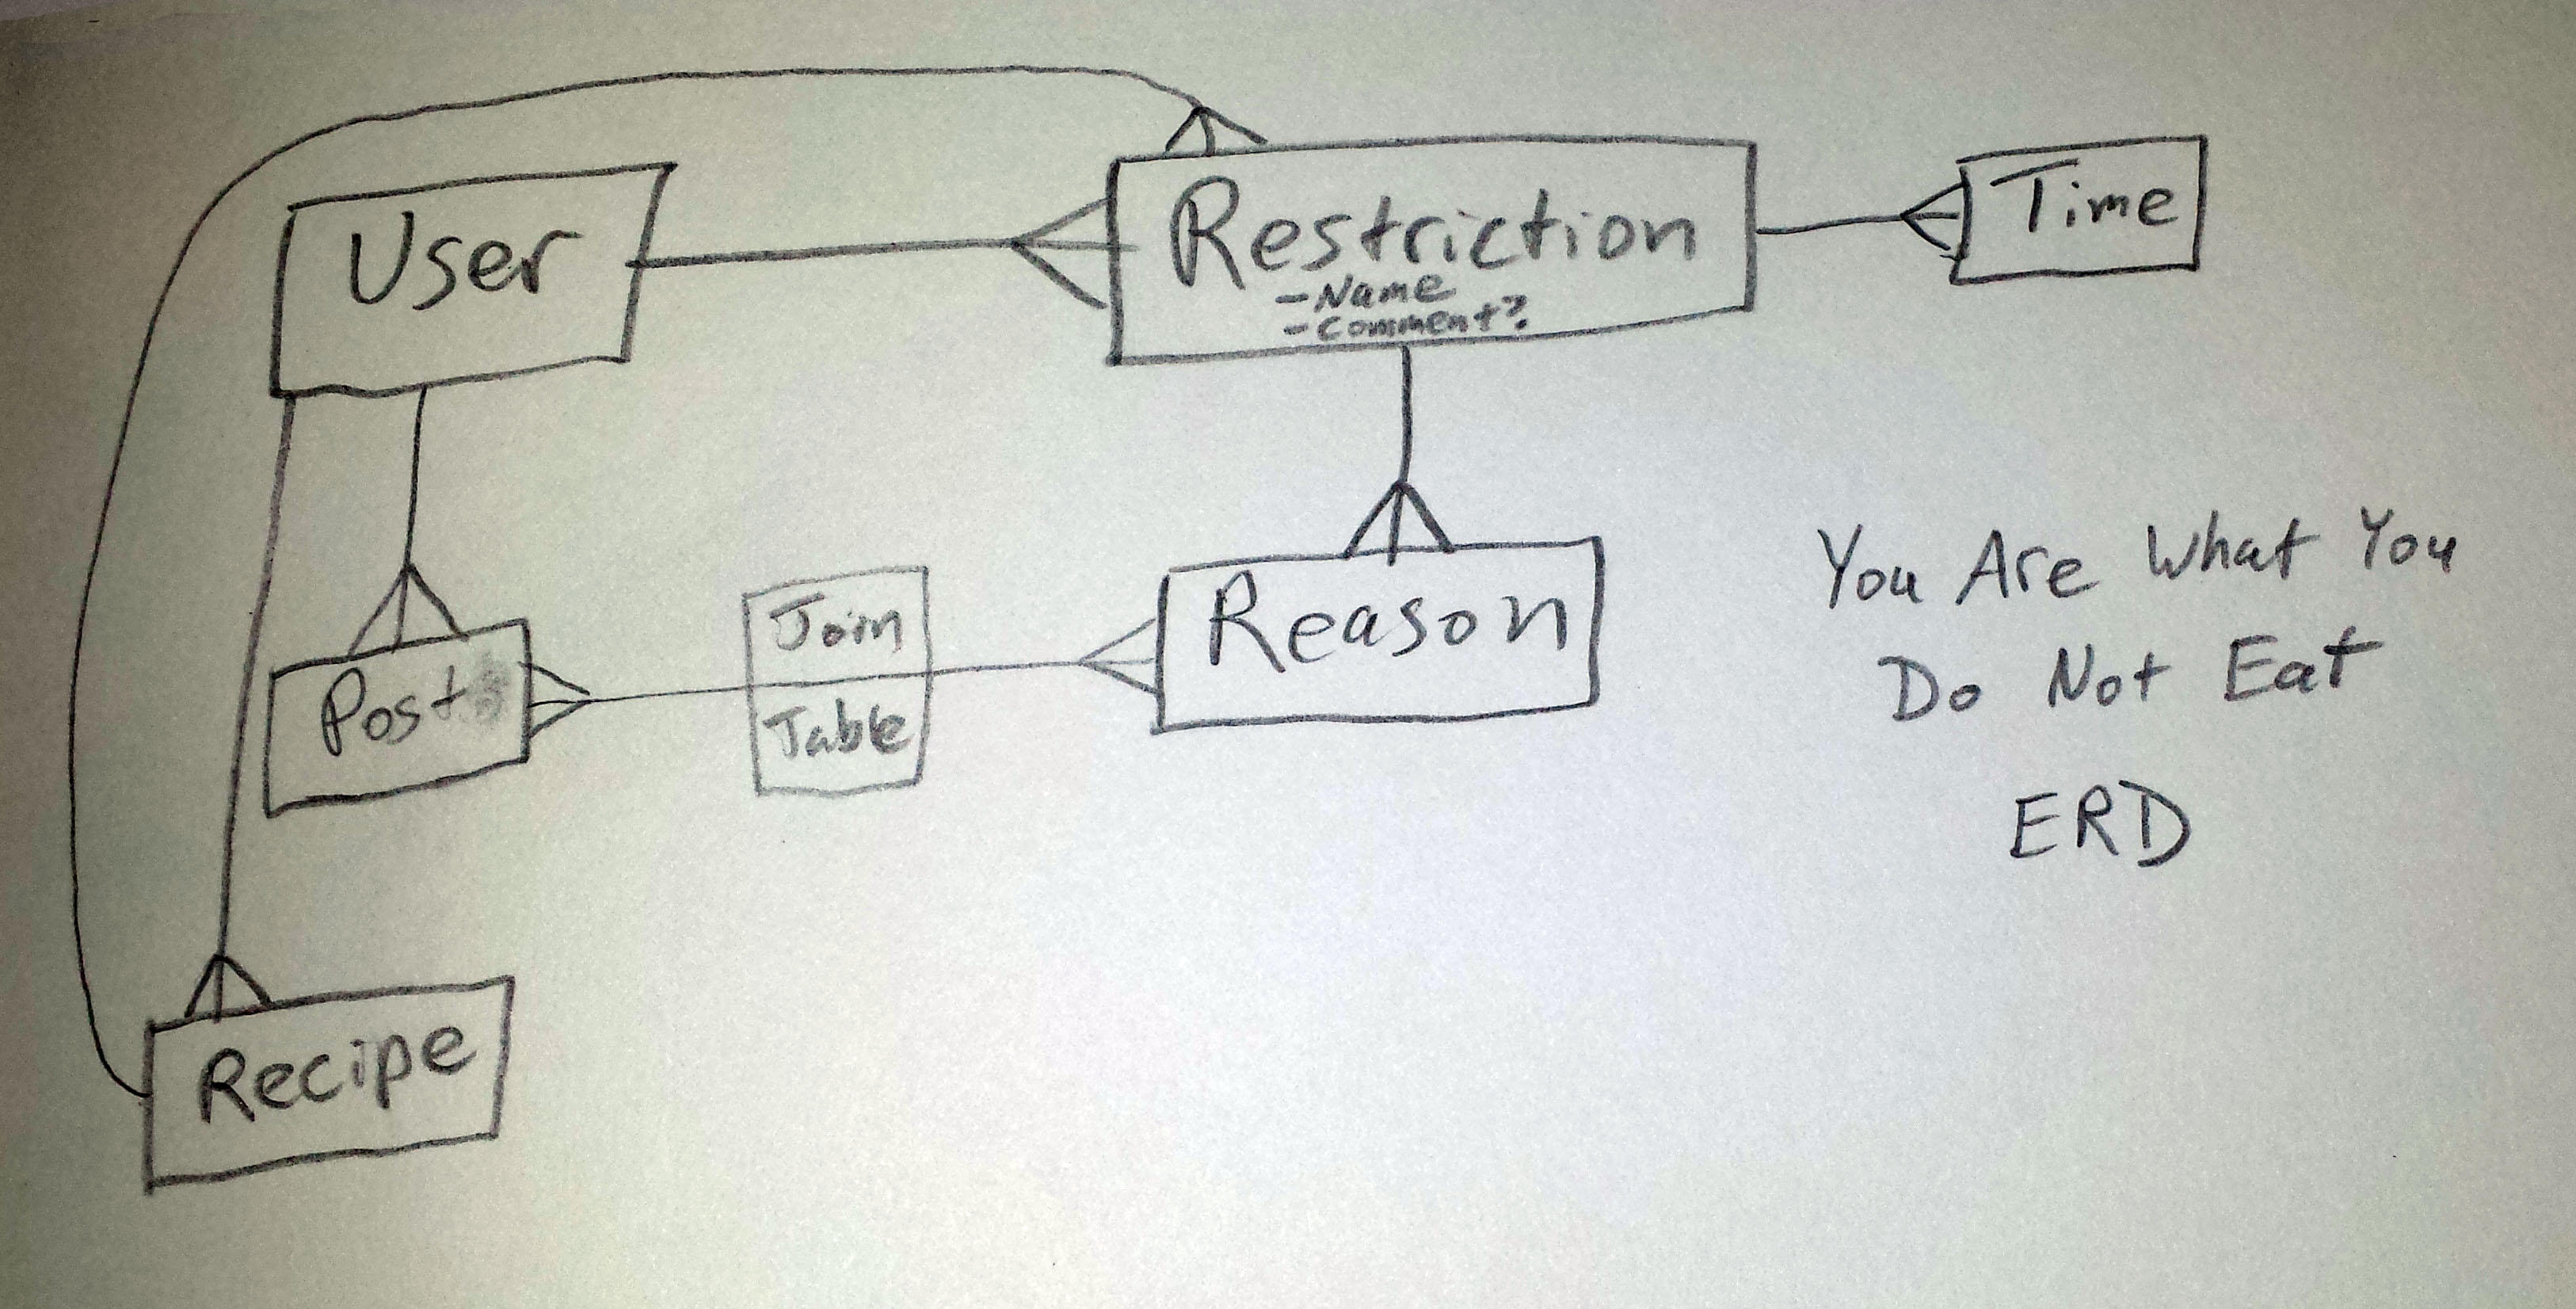 User
Restriction
-Name
-Comment?
Time
Post
Join
Table
Reason
You Are What You
Do Not Eat
ERD
Recipe